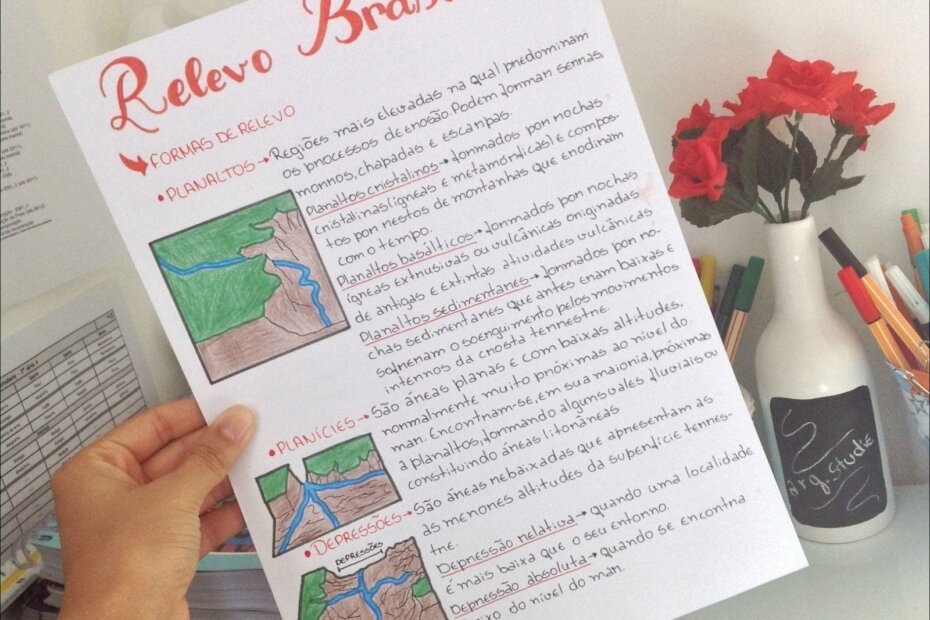 Relevo Bras
FORMAS DE RELEVO
• PLANALTOS → Regiões mais elevadas na qual predominam
os processos de erosão. Podem formar serras,
morros, chapadas e escarpas.
Planaltos cristalinos → formados por rochas
cristalinas (ígneas e metamórficas) e compos
tos por restos de montanhas que erodiram
com o tempo.
Planaltos basálticos → formados por rochas
ígneas extrusivas ou vulcânicas originadas
de antigas e extintas atividades vulcânicas
Planaltos sedimentares → formados por ro-
chas sedimentares que antes eram baixas e
sofreram o soerguimento pelos movimentos
internos da crosta terrestre.
• PLANÍCIES → São áreas planas e com baixas altitudes,
normalmente muito próximas ao nível do
mar. Encontram-se, em sua maioria, próximas
a planaltos, formando alguns vales fluviais ou
constituindo áreas litorâneas.
• DEPRESSÕES → São áreas rebaixadas que apresentam as
as menores altitudes da superfície terres-
tre.
Depressão relativa → quando uma localidade
é mais baixa que o seu entorno.
Depressão absoluta → quando se encontra
do nível do mar.
DEPRESSÕES
arg.Studie